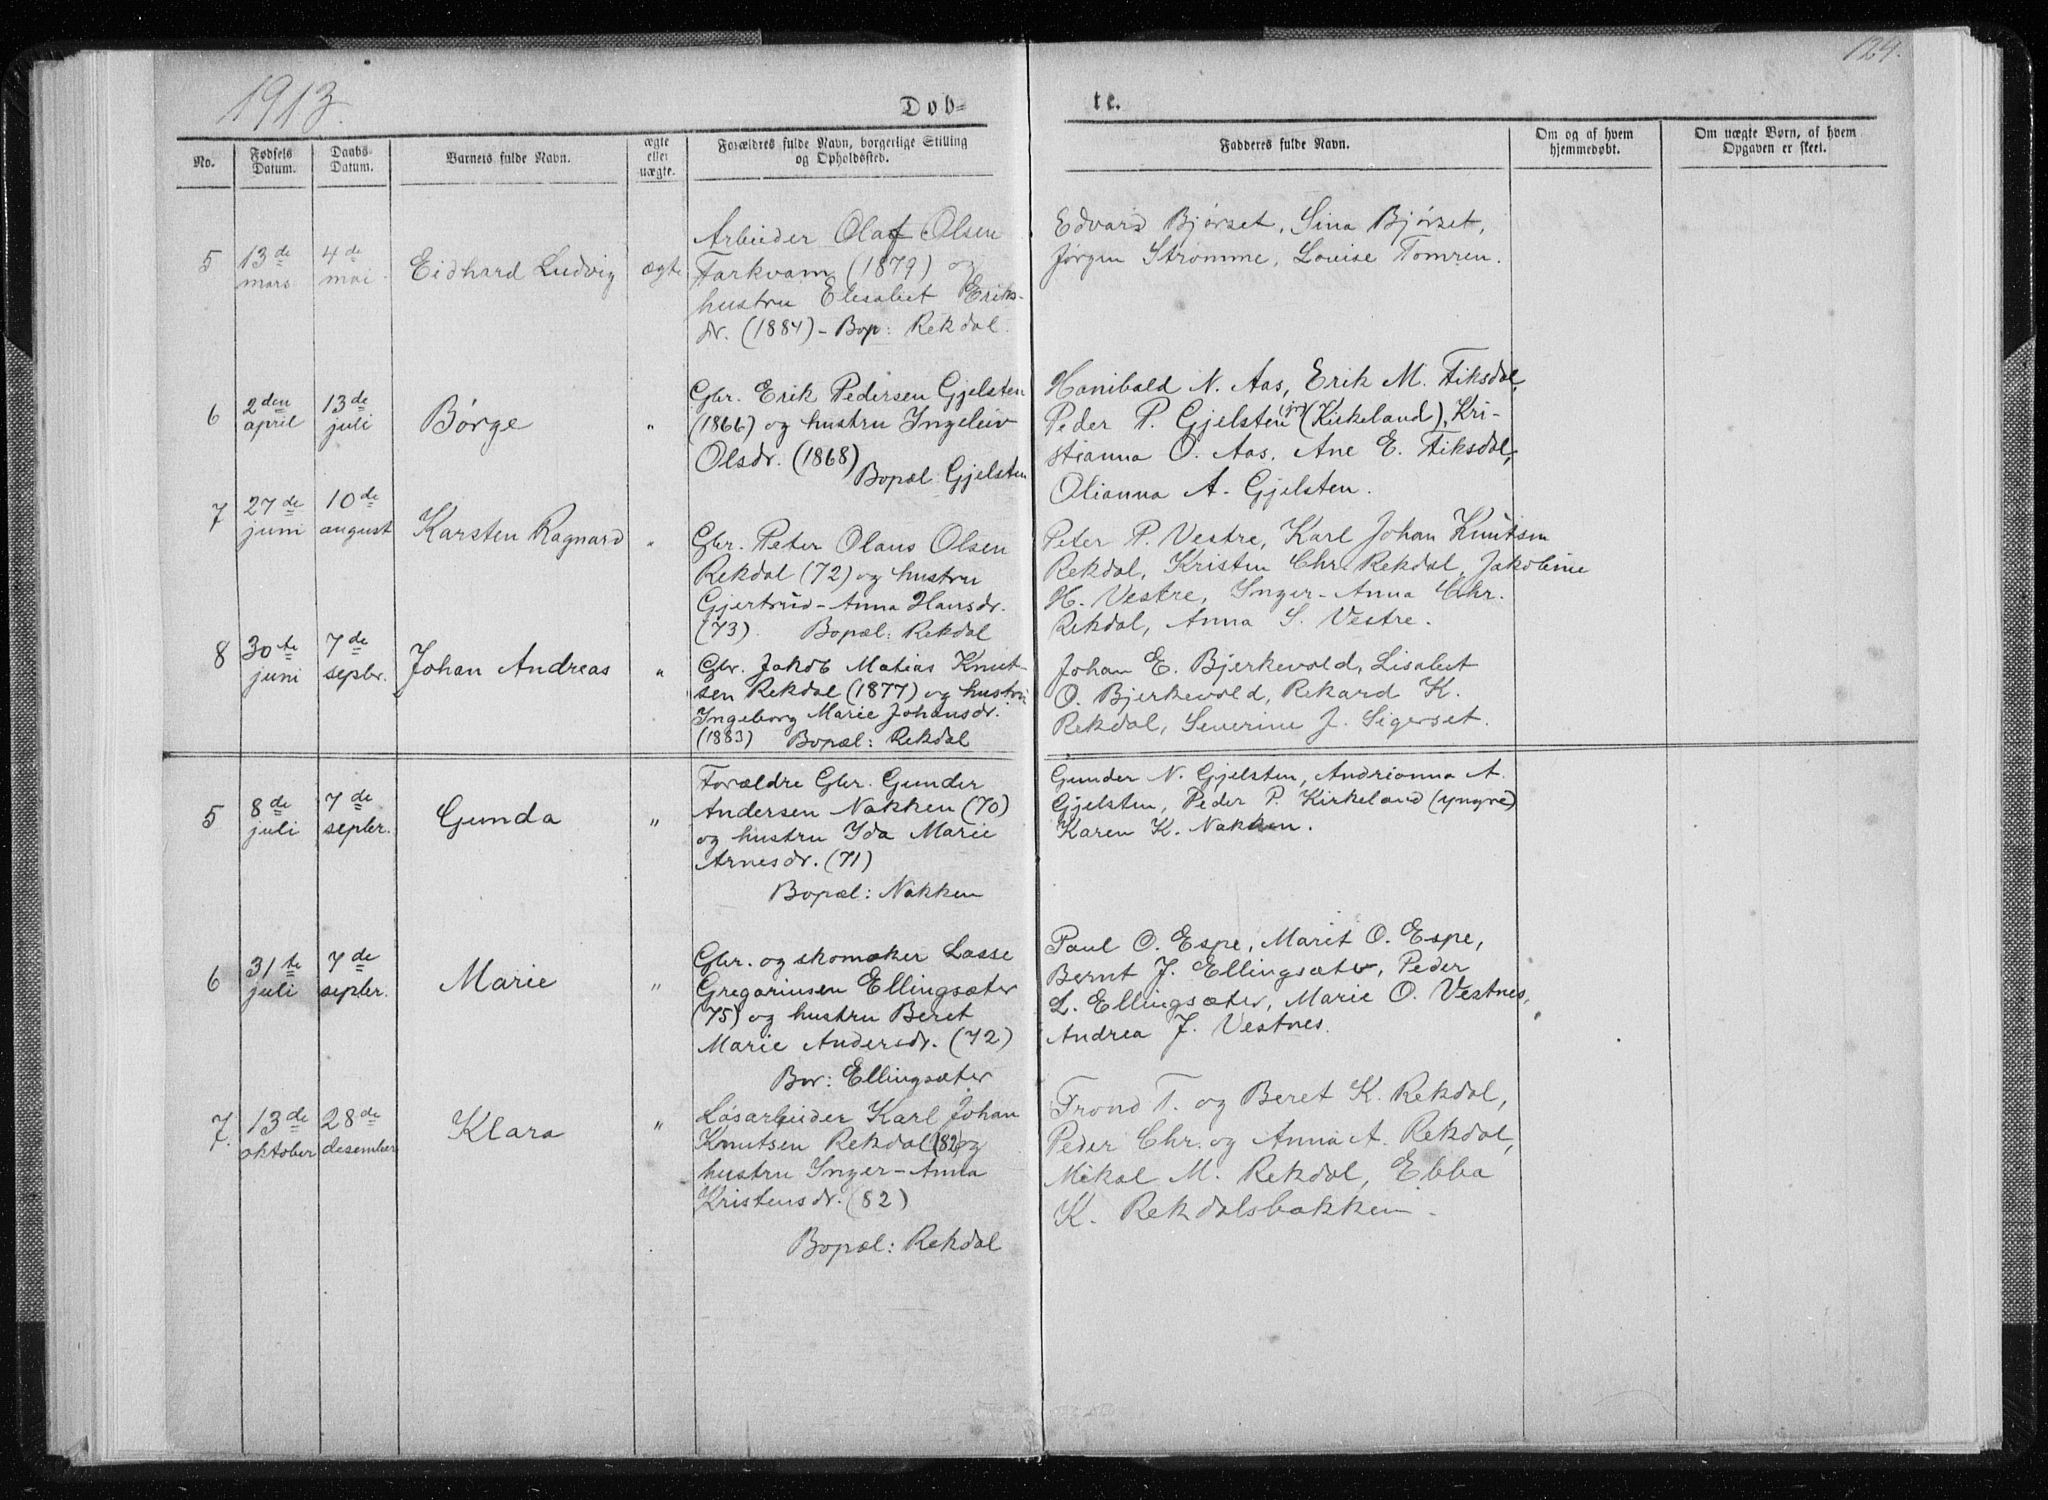 1913.
124.
Døb-
te.
No.
Fødsels Datum.
Daabs- Datum.
Barnets fulde Navn.
ægte eller uægte.
Forældres fulde Navn, borgerlige Stilling og Opholdssted.
Fadderes fulde Navn.
Om og af hvem hjemmedøbt.
Om uægte Børn, af hvem Opgaven er skeet.
5
13de mars
4de mai
Eidhard Ludvig
ægte
Arbeider Olaf Olsen
Farkvam (1879) og
hustru Elisabet Eriks-
dr. (1884) - Bop: Rekdal.
Edvard Bjørset, Sina Bjørset,
Jørgen Strømme, Louise Tomren.
6
2den april
13de juli
Børge
"
Gbr. Erik Pedersen Gjelsten
(1866) og hustru Ingeleiv
Olsdr. (1868)
Bopæl Gjelsten
Hanibald N. Aas, Erik M. Fiksdal,
Peder P. Gjelsten jr (Kirkeland), Kri-
stianna O. Aas, Ane E. Fiksdal,
Olianna A. Gjelsten.
7
27de juni
10de august
Karsten Ragnard
"
Gbr. Peter Olaus Olsen
Rekdal (72) og hustru
Gjertrud-Anna Hansdr.
(73). Bopæl: Rekdal
Peter P. Vestre, Karl Johan Knutsen
Rekdal, Kristen Chr. Rekdal, Jakobine
H. Vestre, Inger-Anna Chr.
Rekdal, Anna S. Vestre.
8
30te juni
7de septbr.
Johan Andreas
"
Gbr. Jakob Matias Knut-
sen Rekdal (1877) og hustru
Ingeborg Marie Johansdr.
(1883) Bopæl: Rekdal
Johan E. Bjerkevold, Lisabet
O. Bjerkevold, Rekard K.
Rekdal, Severine J. Sigerset.
5
8de juli
7de septbr.
Gunda
"
Forældre Gbr. Gunder
Andersen Nakken (70)
og hustru Ida Marie
Arnesdr. (71)
Bopæl: Nakken
Gunder N. Gjelsten, Andrianna A.
Gjelsten, Peder P. Kirkeland (yngre)
Karen K. Nakken.
6
31te juli
7de septbr.
Marie
"
Gbr. og skomaker Lasse
Gregoriusen Ellingsæter
(75) og hustru Beret
Marie Andersdr. (72)
Bor: Ellingsæter
Paul O. Espe, Marit O. Espe,
Bernt J. Ellingsæter, Peder
L. Ellingsæter, Marie O. Vestnes,
Andrea J. Vestnes.
7.
13de oktober
28de desember
Klara
"
Løsarbeider Karl Johan
Knutsen Rekdal (82) og
hustru Inger-Anna
Kristensdr. (82)
Bopæl: Rekdal
Trond T. og Beret K. Rekdal,
Peder Chr. og Anna A. Rekdal,
Mikal M. Rekdal, Ebba
K. Rekdalsbakken.